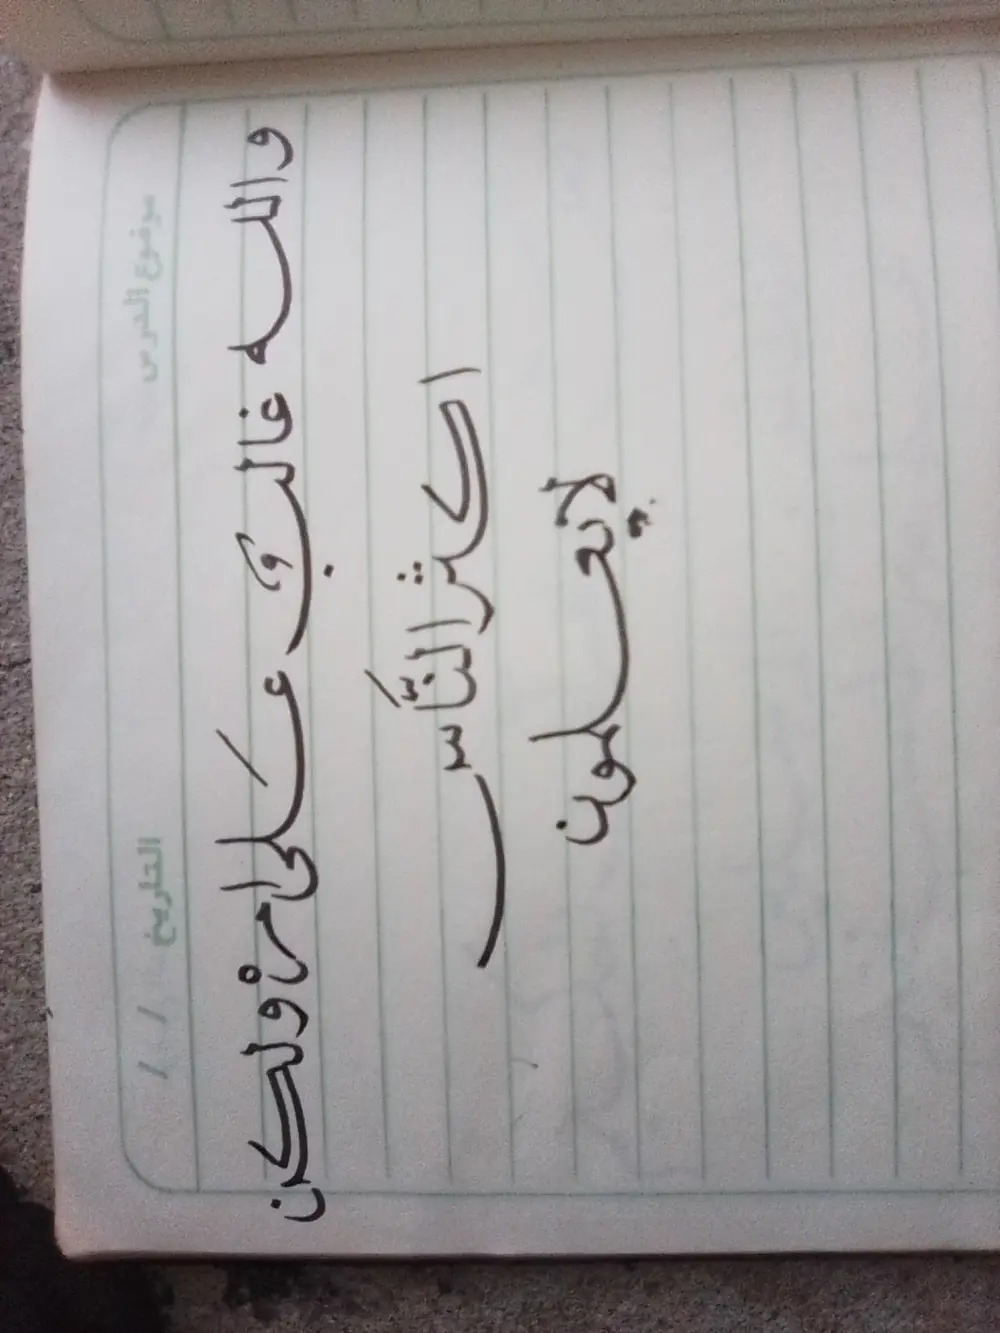 موضوع الدرس التاريخ / /
والله غالب على أمره ولكن
اكثر النَّاس
لا يعلمون